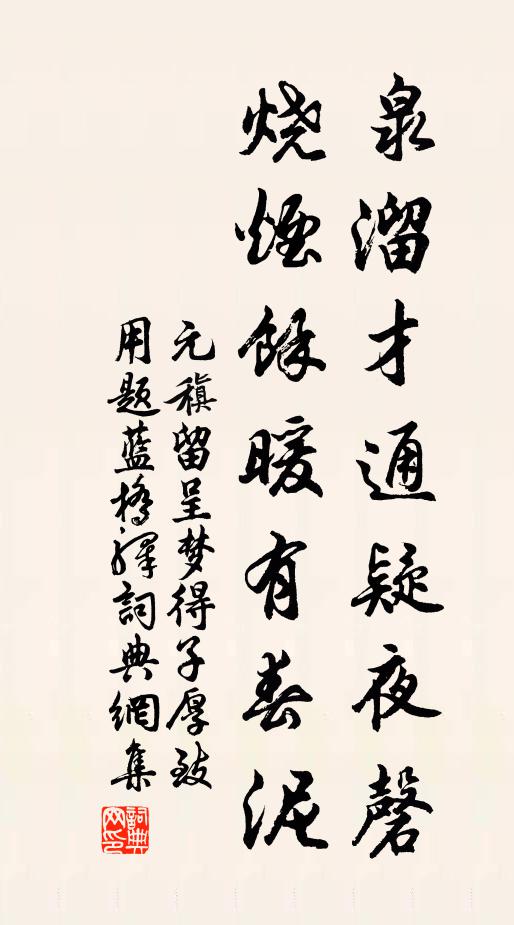 泉溜才通疑夜磬
烧煙馀暖有春泥
元稹留呈梦得子厚致
用題藍橋驛詞典網集
詞典网印